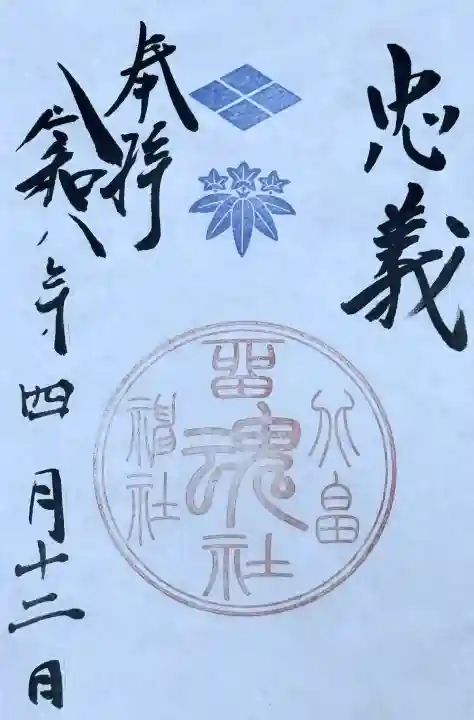 忠義
奉拝
令和八年四月十二日
留魂社
神社